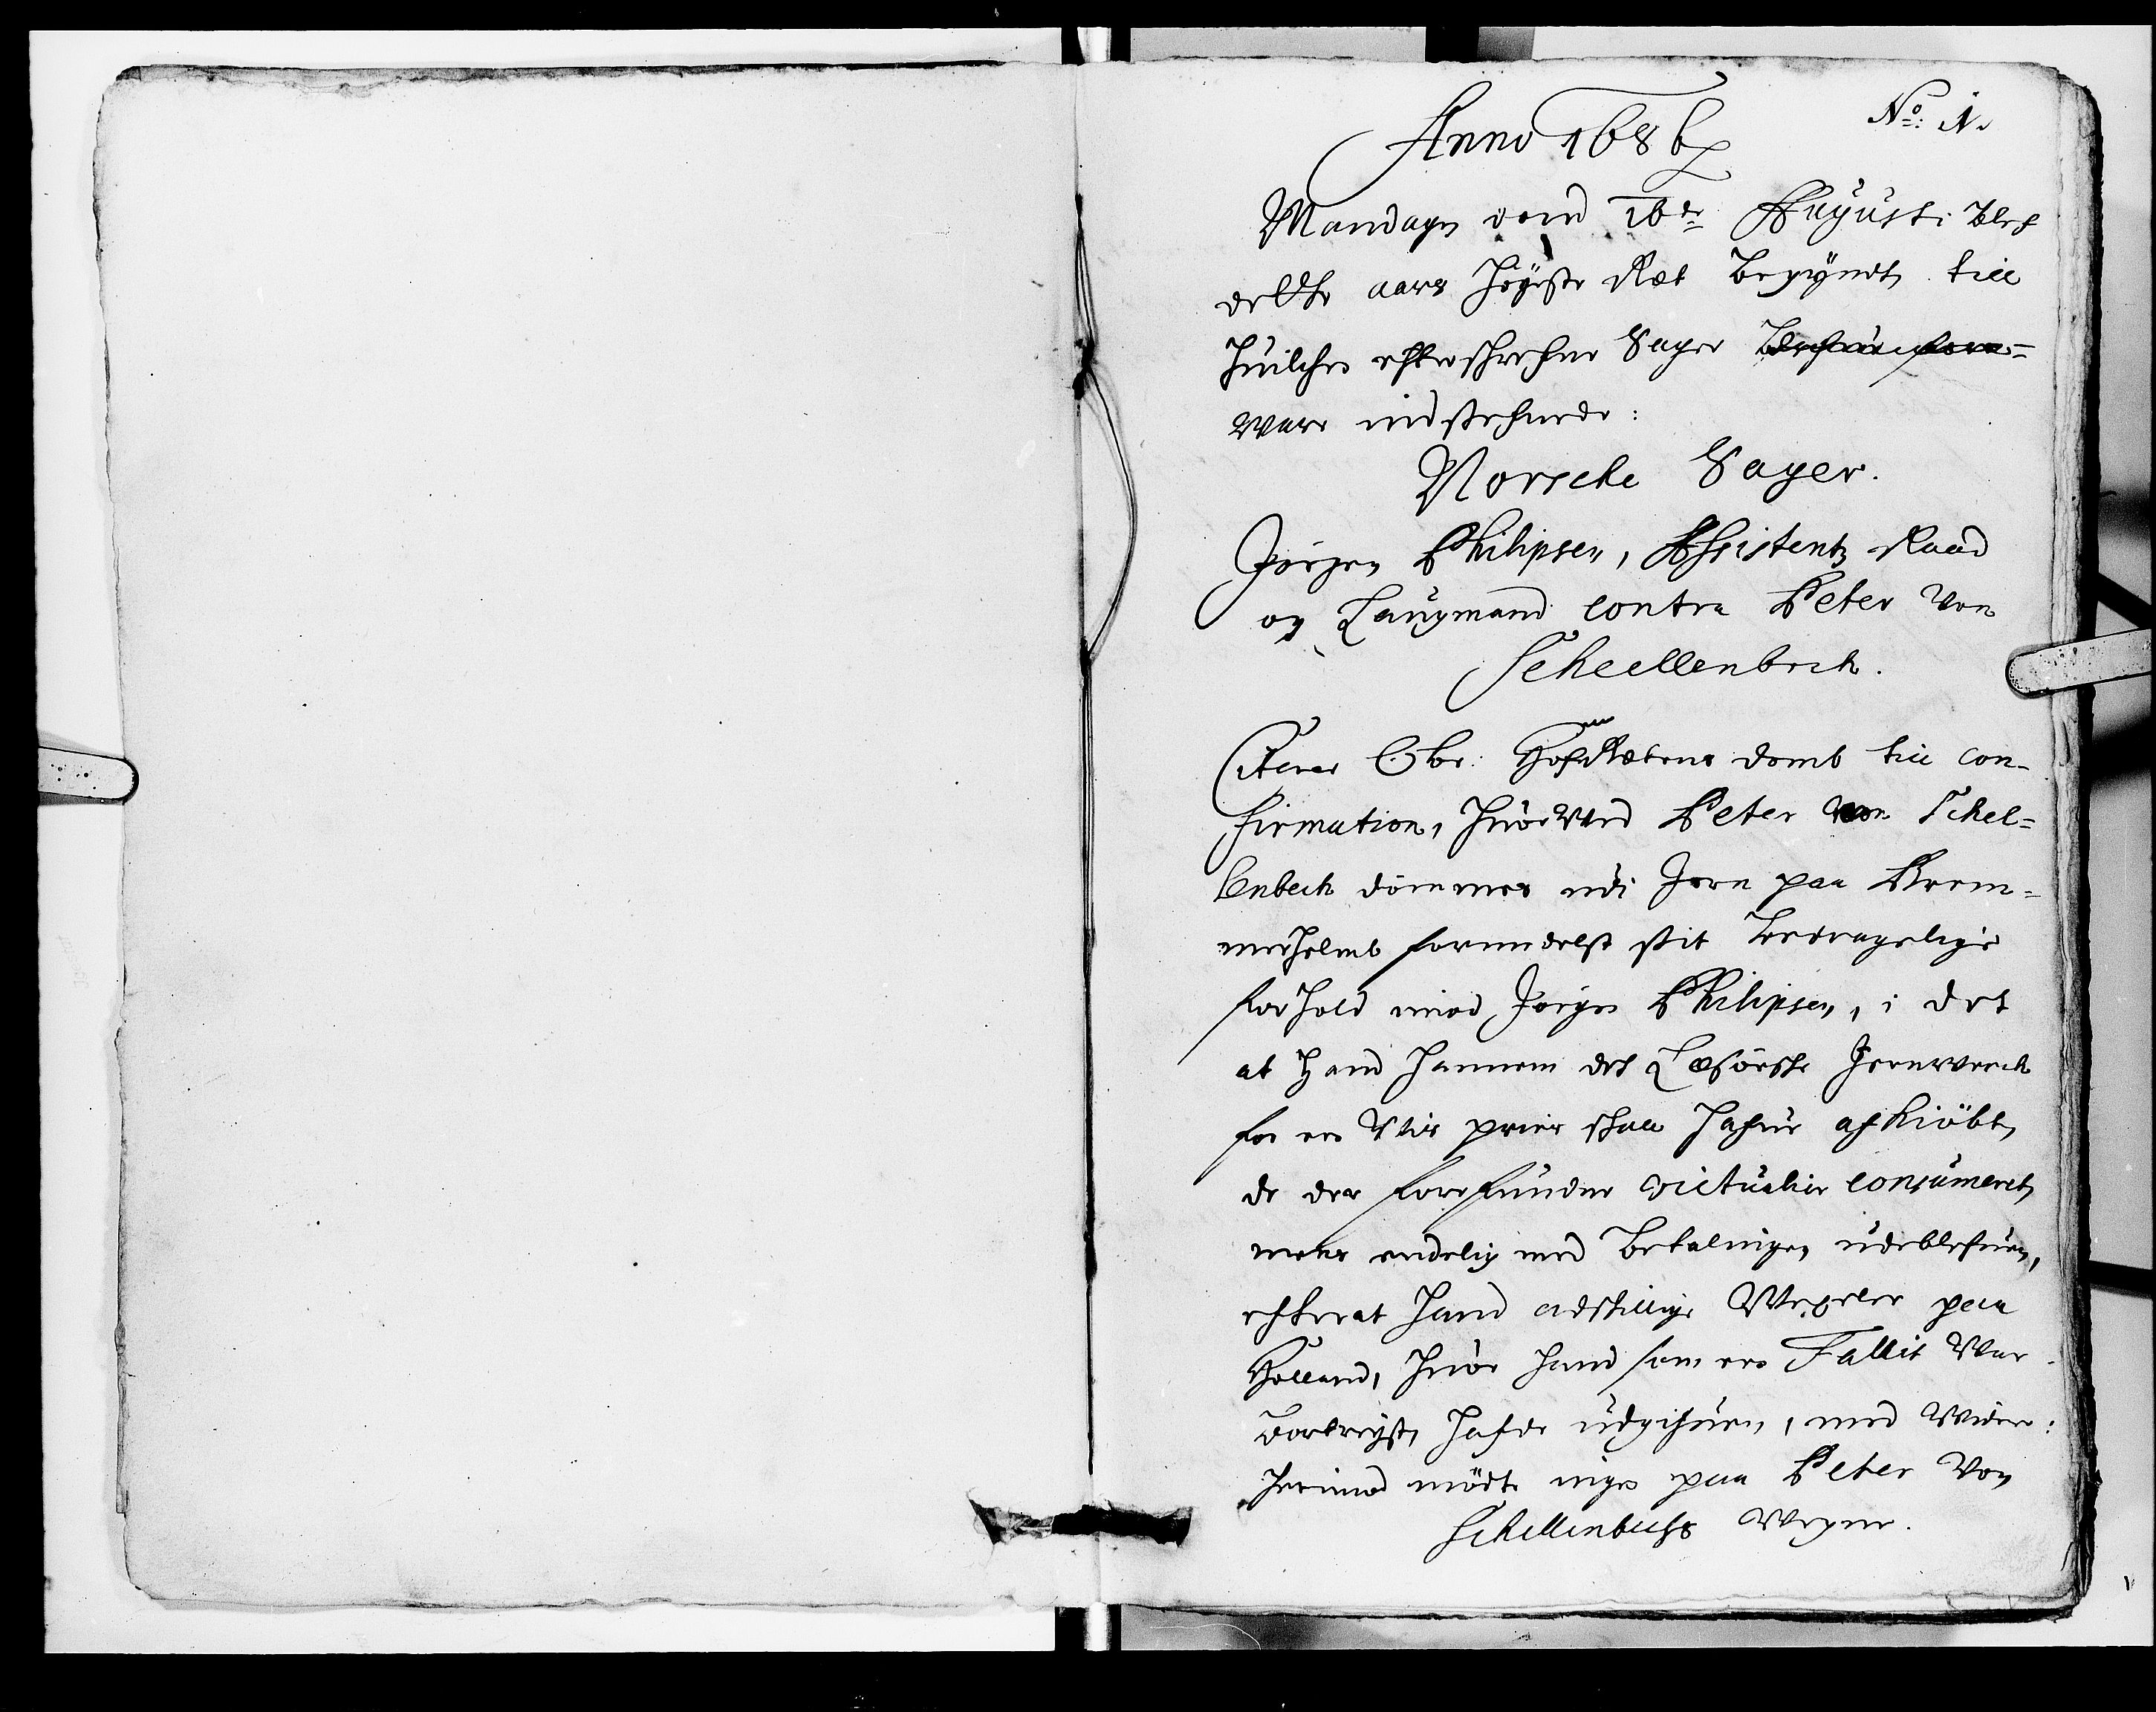 No: 1.
Anno 1686
Mandagen dend 16de Augusti blef
dette aars Høyeste Ræt begyndt, till
huilchen efterschrefne Sager
ware indstefnede:
Norsche Sager.
Jørgen Philipsen, Assistentz Raad
og Laugmand contra Peter von
Schellenbeck.
Citerer Ober: HofRættens domb till con-
firmation, huorved Peter von Schel=
lenbeck dømmes udi Jern paa Brem=
merholmb formedelst sit bedragelige
forhold imod Jørgen Philipsen, i det
at hand hannem det Læsørske Jernwerck
for en viss priis schall hafue afkiøbt,
de der forefundne victualier consumeret,
mens endelig med betalingen udeblefuen,
efter at hand adskillige Wexeler paa
Holland, huor hand som en Fallit var
bortreyst, hafde udgifuen, med videre:
herimod mødte ingen paa Peter von
Schellenbechs Wegne.